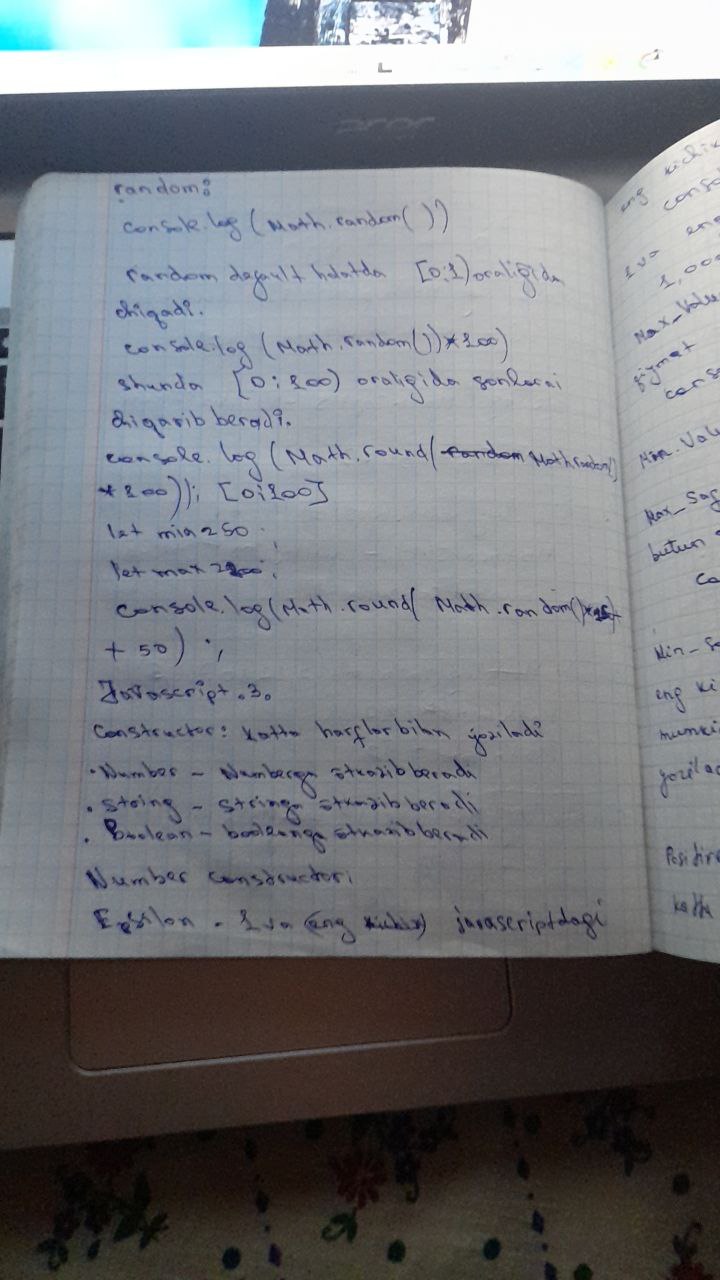 random:
console.log (Math.random( ))
random default holatda [0;1) oralig'ida
chiqadi.
console.log (Math.random())*100)
shunda [0;100) oralig'ida sonlarni
chiqarib beradi.
console.log (Math.round( random Math random()
*100)); [0;100]
let min=50
let max=200;
console.log(Math.round( Math.random()
+ 50) ;
Javascript.3.
Constructor: katta harflar bilan yoziladi
• Number – Numberga o'tkazib beradi
• String – stringa o'tkazib beradi
• Boolean – booleanga o'tkazib beradi
Number constructor:
Epsilon • 1 va (eng kichik) javascriptdagi
eng kichik
conso
1 va eng
1,000
Max_Valu
qiymat
conso
Min_Valu
Max_Saf
butun
Co
Min_Sa
eng ki
mumki
yozilad
Positive
katta